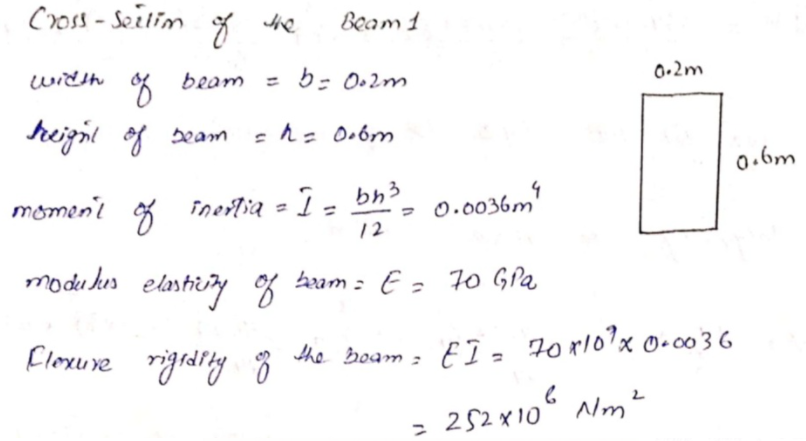 Cross-Section of the Beam 1
width of beam = b = 0.2m
0.2m
height of beam = h = 0.6m
0.6m
moment of inertia = I = bh³/12 = 0.0036m⁴
modulus elasticity of beam = E = 70 GPa
Flexure rigidity of the beam = EI = 70×10⁹× 0.0036
= 252×10⁶ N/m²